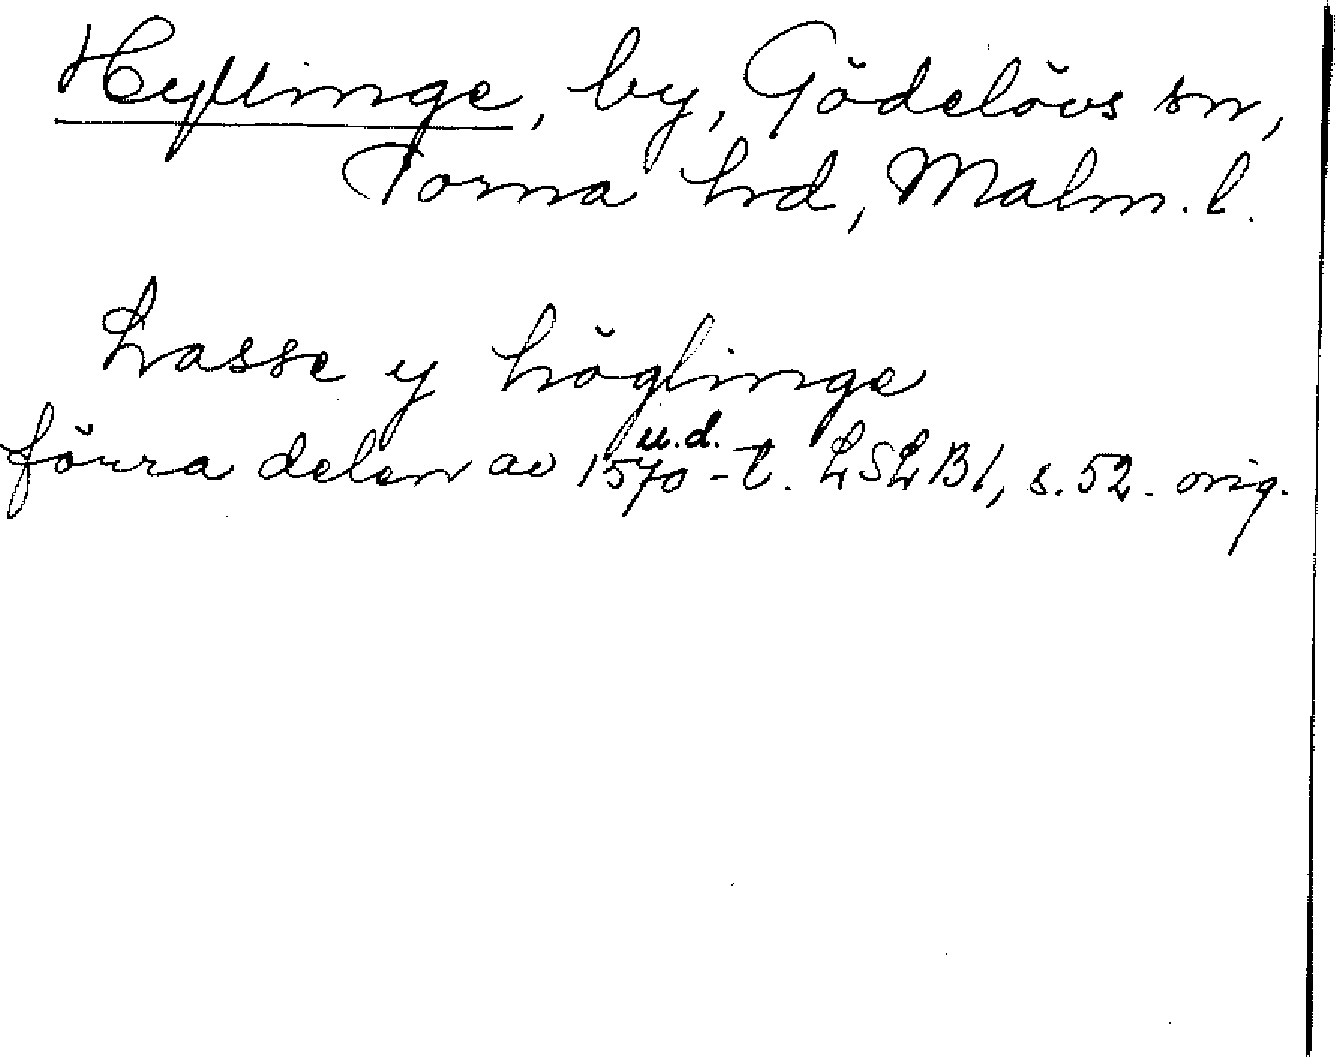 Hyllinge, by, Gödelövs sn,
Torna hd, Malm. l.
Lasse y höglinge
förra delen av 1570-t. LSLB1, s. 52. orig.
u.d.